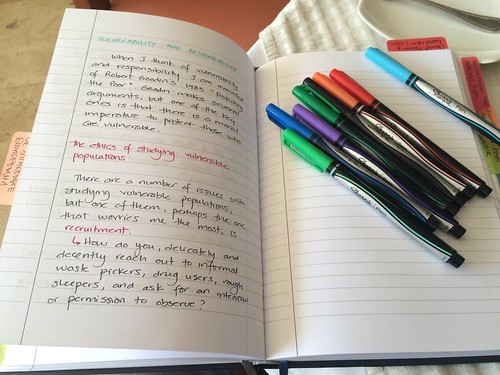 VULNERABILITY AND RESPONSIBILITY
When I think of vulnerability
and responsibility I am reminded
of Robert Goodin's 1985 "Protecting
the Poor". Goodin makes several
arguments, but one of the key
ones is that there is a moral
imperative to protect those who
are vulnerable.
The ethics of studying vulnerable
populations
There are a number of issues with
studying vulnerable populations,
but one of them, perhaps the one
that worries me the most, is
recruitment.
↳ How do you, delicately and
decently reach out to informal
waste pickers, drug users, rough
sleepers, and ask for an interview
or permission to observe?
Sharpie
Sharpie
Sharpie
Sharpie